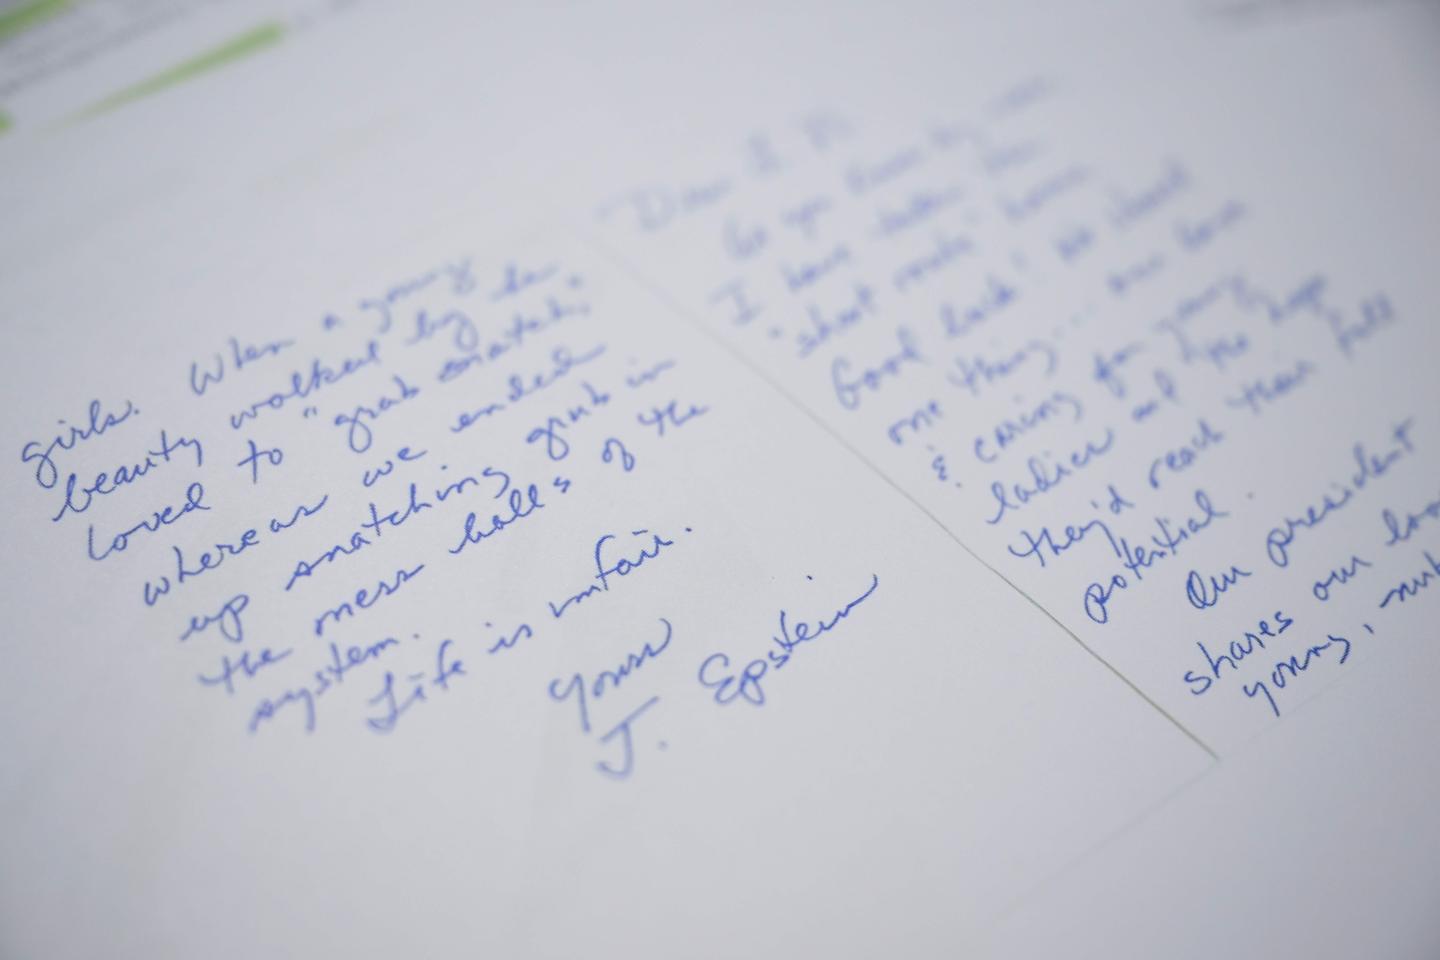 Dear L. N.
As you know by now
I have taken the
"short route" home.
Good luck! We shared
one thing... our love
& caring for young
ladies and the hope
they'd reach their full
potential.
Our president
shares our lov
young, nub
girls. When a young
beauty walked by he
loved to "grab snatch,"
whereas we ended
up snatching grub in
the mess halls of the
system.
Life is unfair.
Yours
J. Epstein